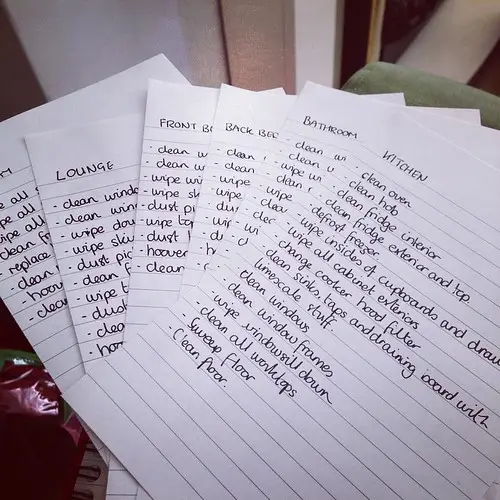 wipe all
wipe all
clean
replace
clean
LOUNGE
- clean
- clean
- wipe
- wipe
- dust
- clean
- wipe
- dust
FRONT
- clean
- clean
- wipe
- wipe
- dust
- wipe top
- dust
- hoover
- clean
BACK
- clean
- clean
- wipe
- wipe
- dust
- wipe
BATHROOM
- clean
- clean
- wipe
- clean
- wipe
KITCHEN
- clean oven
- clean hob
- clean fridge interior
- clean fridge exterior and top
- defrost freezer
- wipe insides of cupboards and draw
- wipe all cabinet exteriors
- change cooker hood filter
- clean sinks, taps and draining board with
limescale stuff
- clean windows
- clean window frames
- wipe windowsill down
- clean all worktops
- sweep floor
- clean floor.